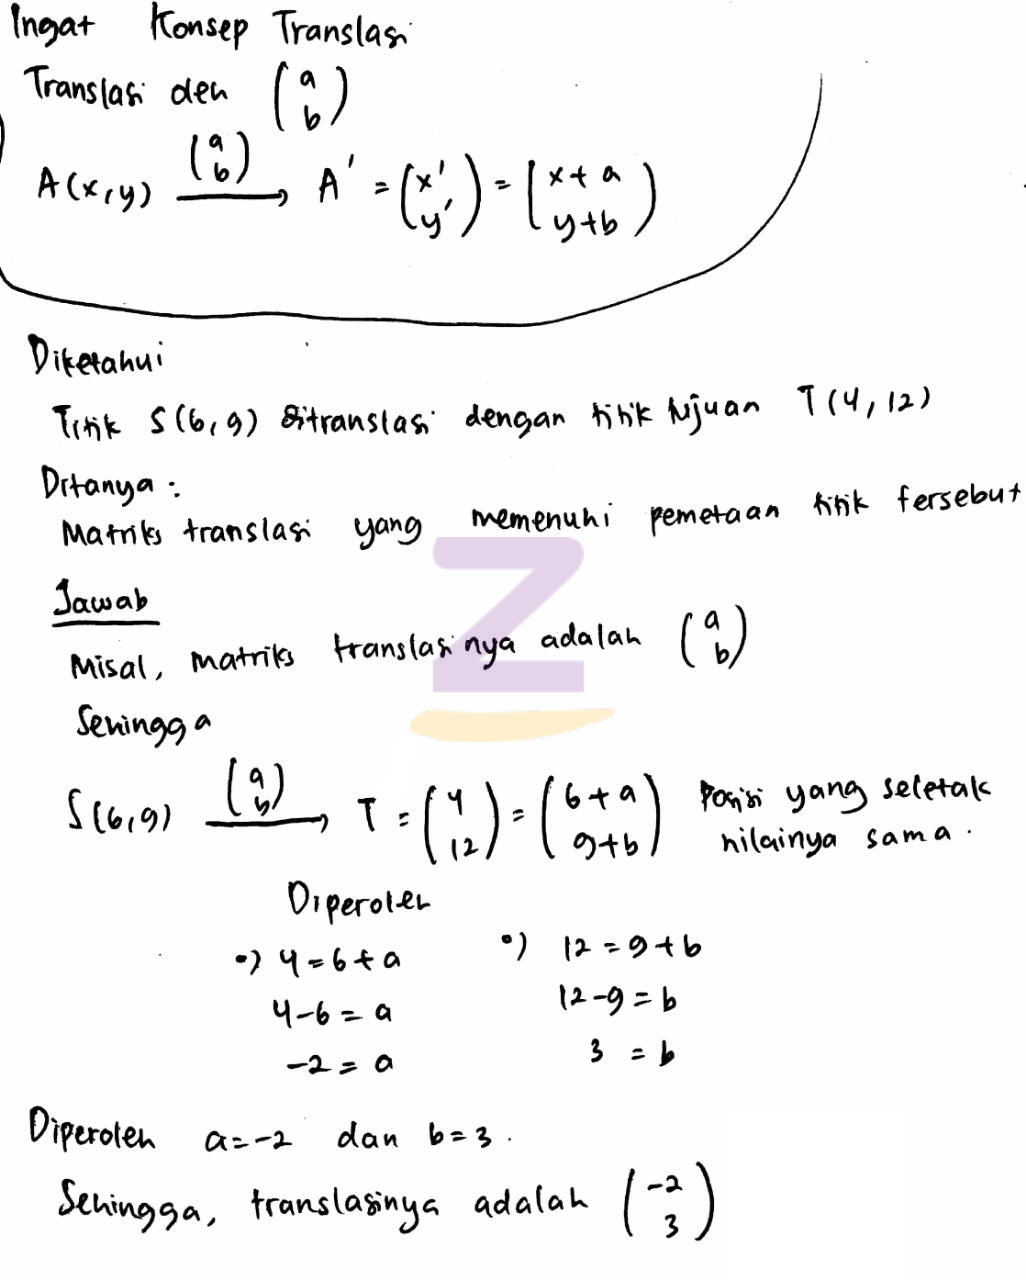 Ingat Konsep Translasi
Translasi den (a b)
A(x,y) (a b) → A' = (x' y') = (x+a y+b)
Diketahui
Titik S(6,9) ditranslasi dengan titik tujuan T(4,12)
Ditanya :
Matriks translasi yang memenuhi pemetaan titik tersebut
Jawab
Misal, matriks translasinya adalah (a b)
Sehingga
S(6,9) (a b) → T = (4 12) = (6+a 9+b) Posisi yang seletak nilainya sama.
Diperoleh
•) 4=6+a •) 12=9+b
4-6=a 12-9=b
-2=a 3=b
Diperoleh a=-2 dan b=3.
Sehingga, translasinya adalah (-2 3)
Z